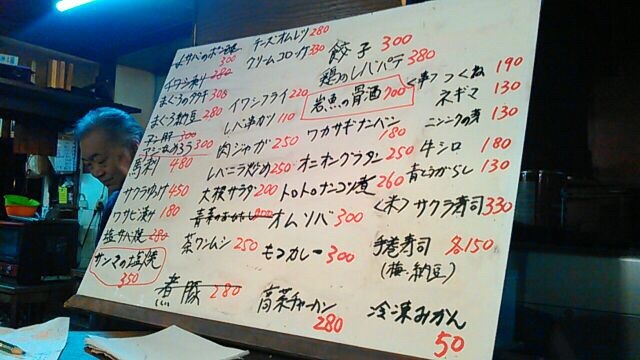 チーズオムレツ 280
クリームコロッケ 330
餃子 300
鶏のレバパテ 380
岩魚の骨酒 700
<串> つくね 190
ネギマ 130
ニンニクの芽 130
牛シロ 180
青とうがらし 130
300
280
まぐろのタタキ 300
まぐろ納豆 280
300
300
馬刺 480
サクラユッケ 450
ワサビ漬ケ 180
塩サバ焼 280
サンマの塩焼 350
イワシフライ 220
レバ串カツ 110
肉ジャガ 250
レバニラ炒め 250
大根サラダ 200
茶ワンムシ 250
煮豚 280
ワカサギナンバン 180
オニオングラタン 250
トロトロナンコツ煮 260
オムソバ 300
モツカレー 300
高菜チャーハン 280
<木> サクラ寿司 330
手巻寿司 各150
(梅・納豆)
冷凍みかん 50